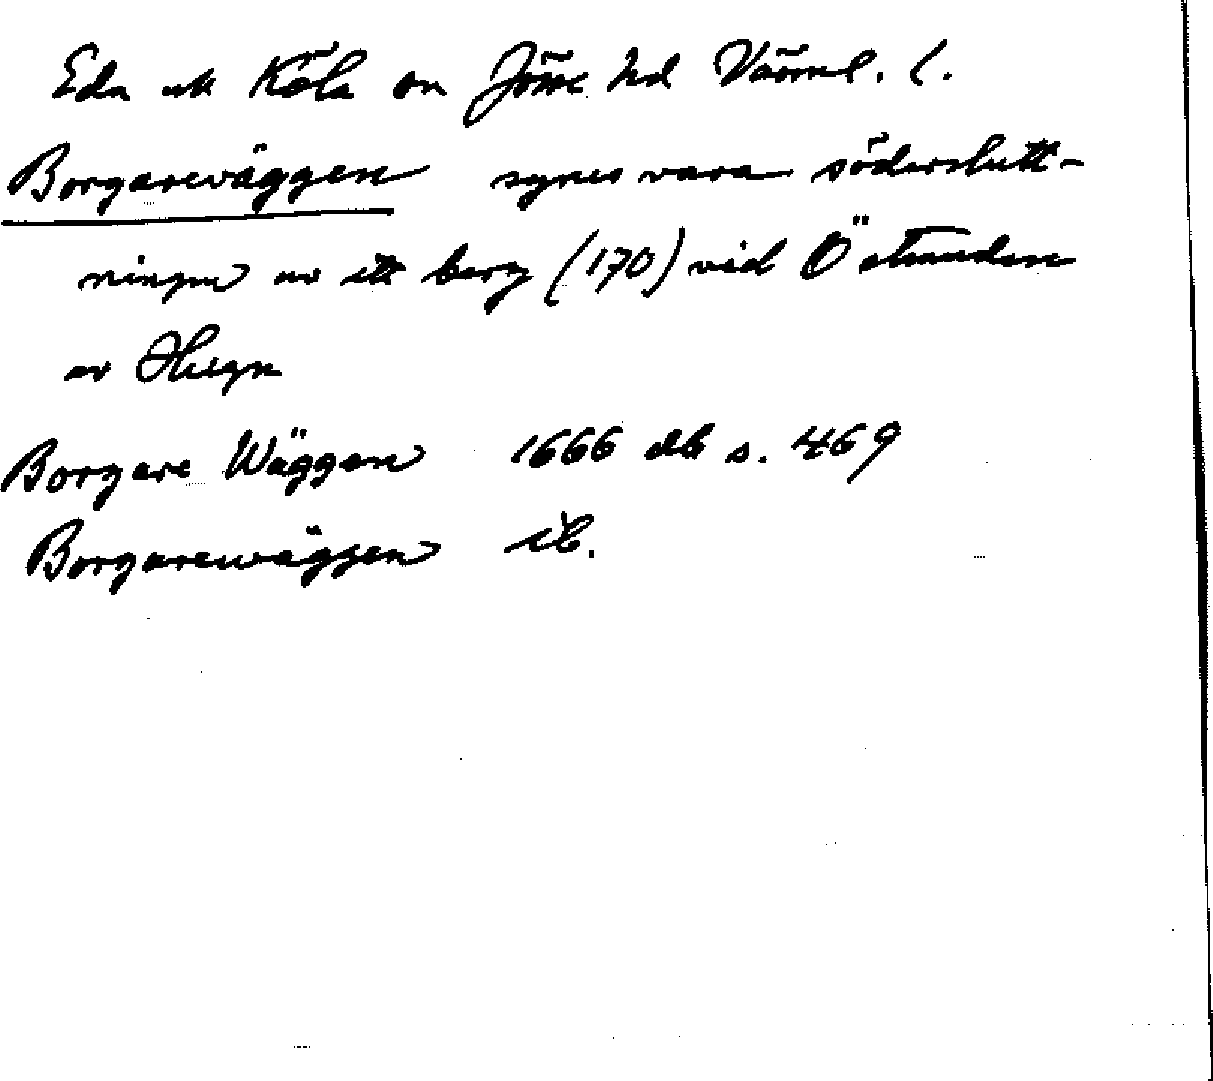 Eda och Köla sn Jösse hd Värml. l.
Borgareväggen synes vara söderslutt-
ningen av ett berg (170) vid Östranden
av Hugn
Borgare Wäggen 1666 db s. 469
Borgarewäggen ib.